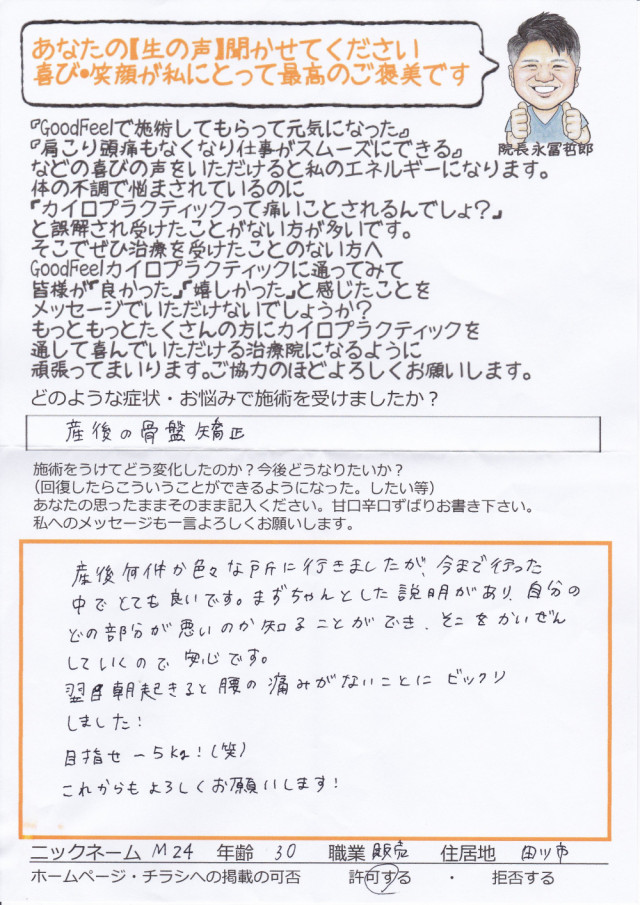 あなたの【生の声】聞かせてください
喜び・笑顔が私にとって最高のご褒美です
院長 永冨哲郎
『GoodFeelで施術してもらって元気になった』
『肩こり頭痛もなくなり仕事がスムーズにできる』
などの喜びの声をいただけると私のエネルギーになります。
体の不調で悩まされているのに
「カイロプラクティックって痛いことされるんでしょ？」
と誤解され受けたことがない方が多いです。
そこでぜひ治療を受けたことのない方へ
GoodFeelカイロプラクティックに通ってみて
皆様が「良かった」「嬉しかった」と感じたことを
メッセージでいただけないでしょうか？
もっともっとたくさんの方にカイロプラクティックを
通して喜んでいただける治療院になるように
頑張ってまいります。ご協力のほどよろしくお願いします。
どのような症状・お悩みで施術を受けましたか？
産後の骨盤矯正
施術をうけてどう変化したのか？今後どうなりたいか？
（回復したらこういうことができるようになった。したい等）
あなたの思ったままそのまま記入ください。甘口辛口ずばりお書き下さい。
私へのメッセージも一言よろしくお願いします。
産後何件か色々な所に行きましたが、今まで行った
中でとても良いです。まずちゃんとした説明があり、自分の
どの部分が悪いのか知ることができ、そこをかいぜん
していくので安心です。
翌日朝起きると腰の痛みがないことにビックリ
しました！
目指せ－5kg！（笑）
これからもよろしくお願いします！
ニックネーム M24 年齢 30 職業 販売 住居地 田川市
ホームページ・チラシへの掲載の可否 許可する ・ 拒否する